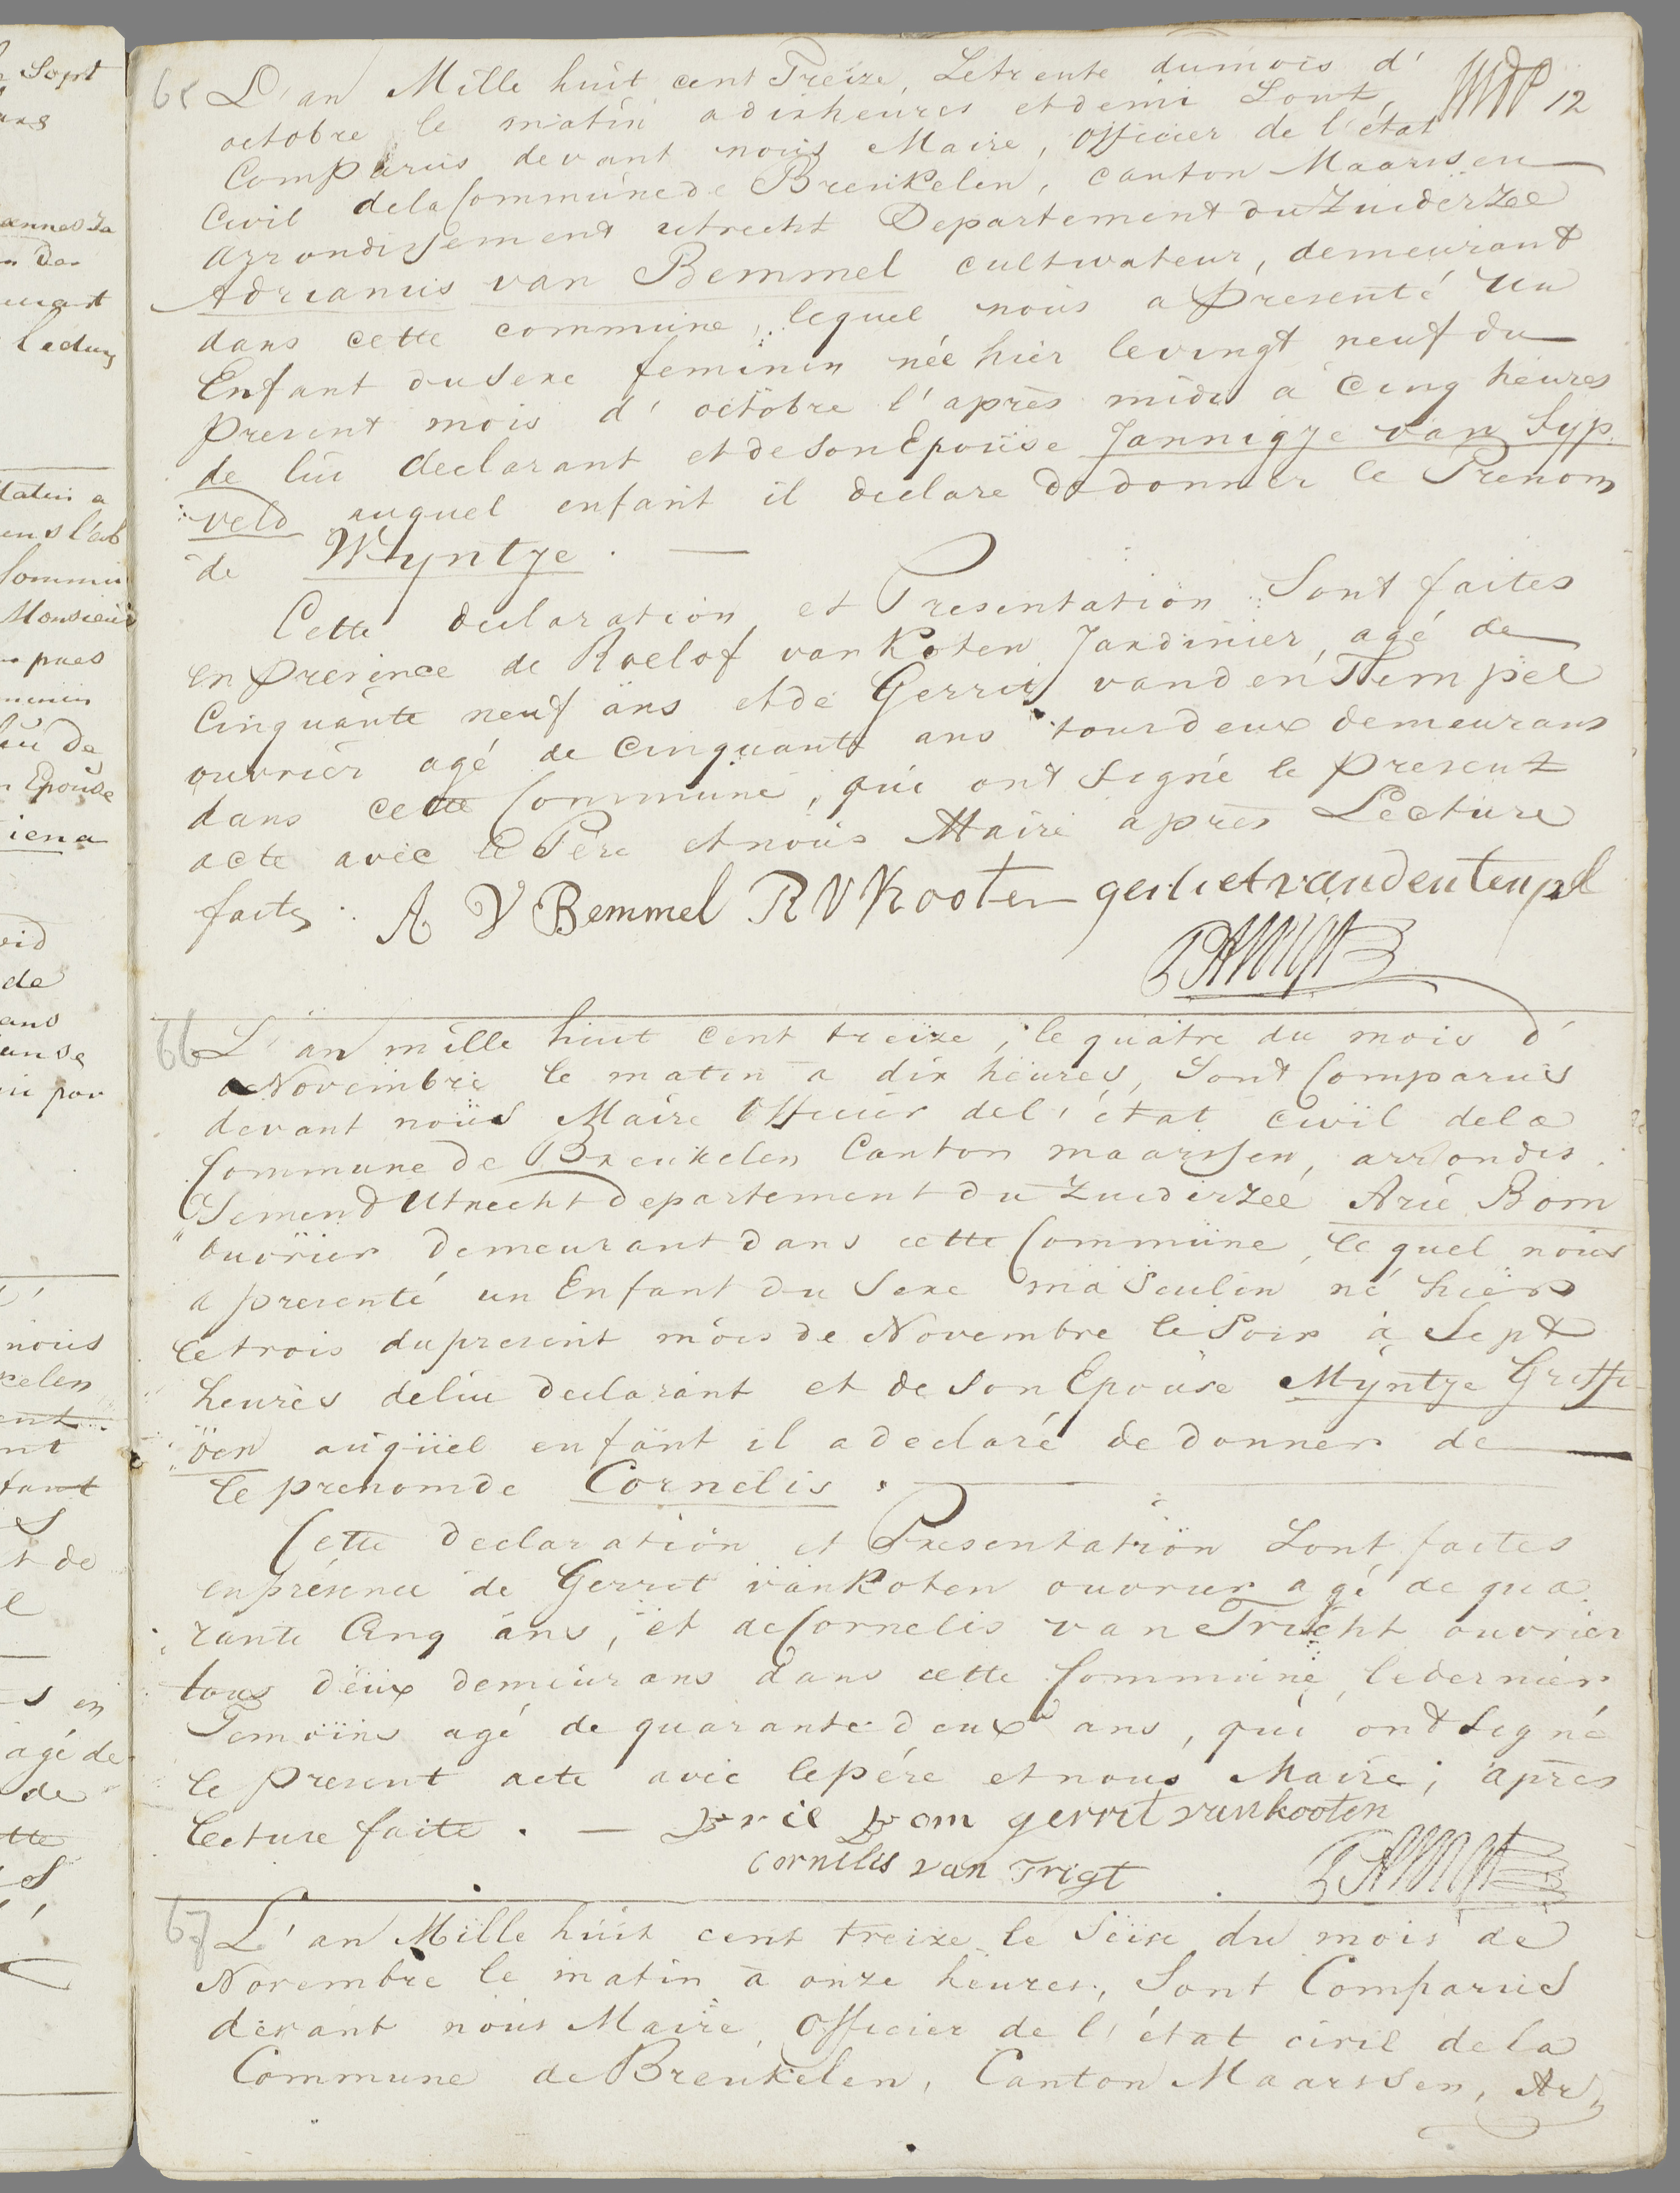 65 L'an Mille huit cent Treize, Le trente du mois d'
12
octobre le matin a dix heures et demi Sont,
Comparus devant nous Maire, officier de l'état
Civil de la Commune de Breukelen, canton Maarssen
arrondissement utrecht Departement du Zuiderzee
Adrianus van Bemmel cultivateur, demeurant
dans cette commune, lequel nous a presenté un
Enfant du Sexe feminin née hier le vingt neuf du
present mois d'octobre l'après midi à Cinq heures
de lui declarant et de Son Epouse Jannigje van Syp
veld auquel enfant il declare de donner le Prenom
de Wyntje. —
Cette declaration et Presentation Sont faites
en presence de Roelof van Koten Jardinier, agé de
Cinquante neuf ans et de Gerrit van den Tempel
ouvrier agé de Cinquante ans tous deux demeurans
dans cette Commune, qui ont Signé le present
acte avec le Pere et nous Maire après Lecture
faite. A V Bemmel R V Kooten van den
66 L'an mille huit cent treize, le quatre du mois d'
Novembre le matin a dix heures, Sont Comparus
devant nous Maire Officier de l'état Civil de la
Commune de Breukelen Canton maarssen, arrondis
Sement Utrecht departement du Zuiderzee Arie Bom
ouvrier demeurant dans cette Commune, lequel nous
a presenté un Enfant du Sexe masculin né hier
le trois du present mois de Novembre le Soir à Sept
heures de lui declarant et de Son Epouse Myntje Griffi
oen auquel enfant il a declaré de donner de —
le prenom de Cornelis.
Cette declaration et Presentation Sont faites
en présence de Gerrit van Koten ouvrier agé de qua
rante Cinq ans, et de Cornelis van Tricht ouvrier
tous deux demeurans dans cette Commune, le dernier
Temoins agé de quarante deux ans, qui ont Signé
le Present acte avec le père et nous Maire, après
lecture faite. — Arie Bom gerrit van kooten
Cornelis van Trigt
67 L'an Mille huit cent treize le Seize du mois de
Novembre le matin à onze heures, Sont Comparus
devant nous Maire, Officier de l'état civil de la
Commune de Breukelen, Canton Maarssen, Ar